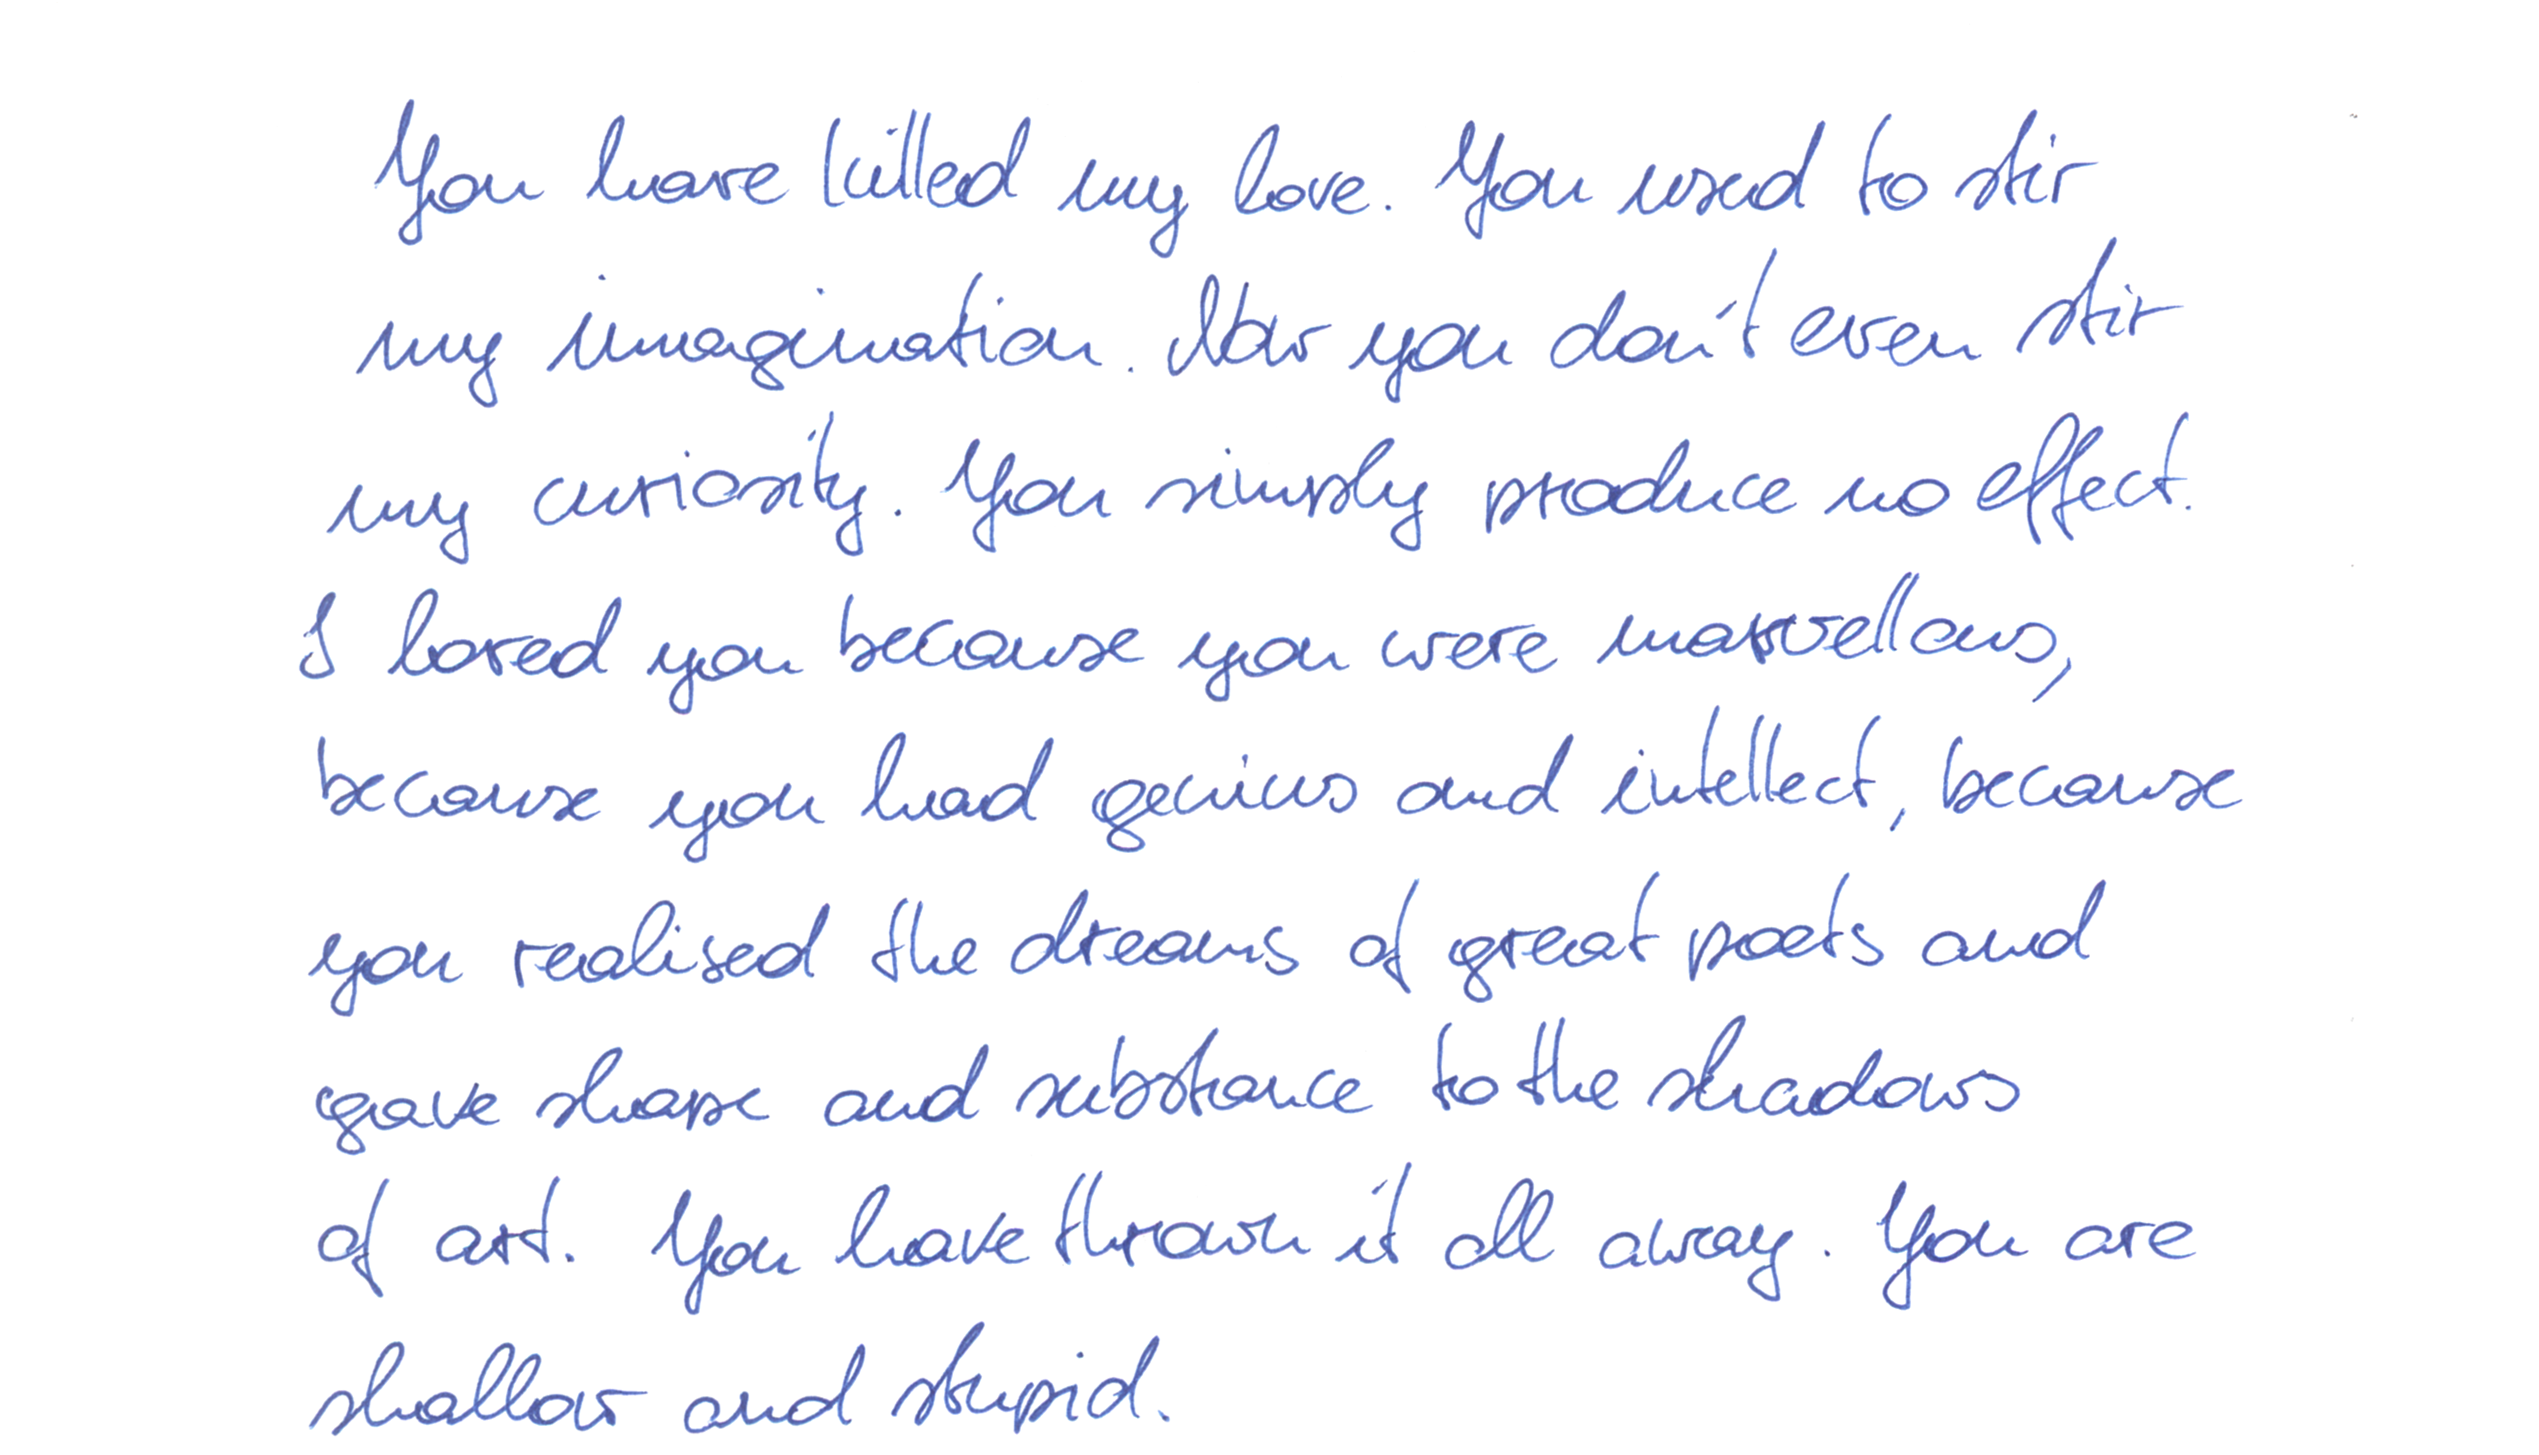 You have killed my love. You used to stir
my imagination. Now you don't even stir
my curiosity. You simply produce no effect.
I loved you because you were marvellous,
because you had genius and intellect, because
you realised the dreams of great poets and
gave shape and substance to the shadows
of art. You have thrown it all away. You are
shallow and stupid.